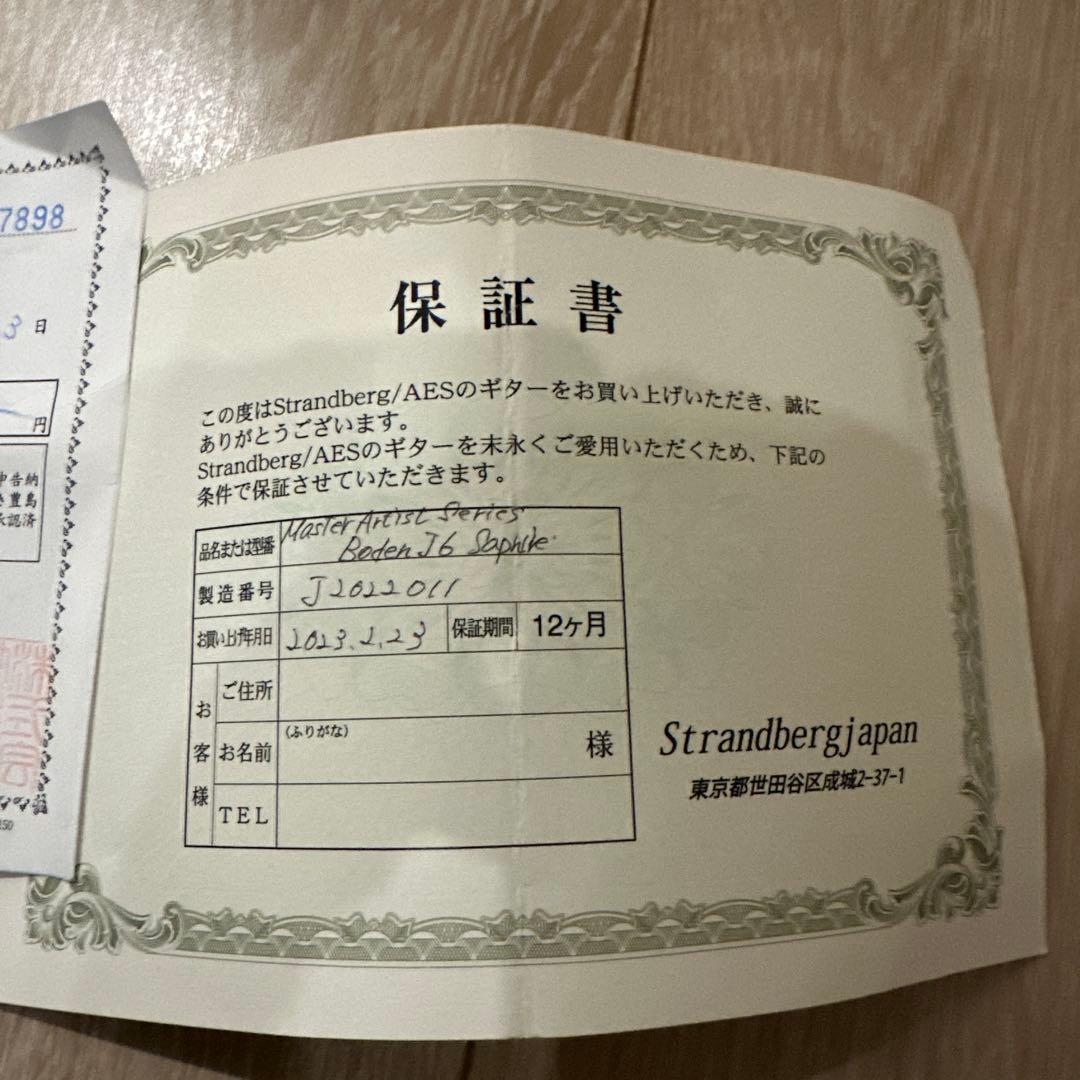 7898
3日
円
申告納
豊島
承認済
150
保証書
この度はStrandberg/AESのギターをお買い上げいただき、誠に
ありがとうございます。
Strandberg/AESのギターを末永くご愛用いただくため、下記の
条件で保証させていただきます。
品名または型番 Master Artist Series
Boden J6 Saphire
製造番号 J2022011
お買い上げ年月日 2023.2.23 保証期間 12ヶ月
お客様
ご住所
お名前 (ふりがな) 様
TEL
Strandbergjapan
東京都世田谷区成城2-37-1